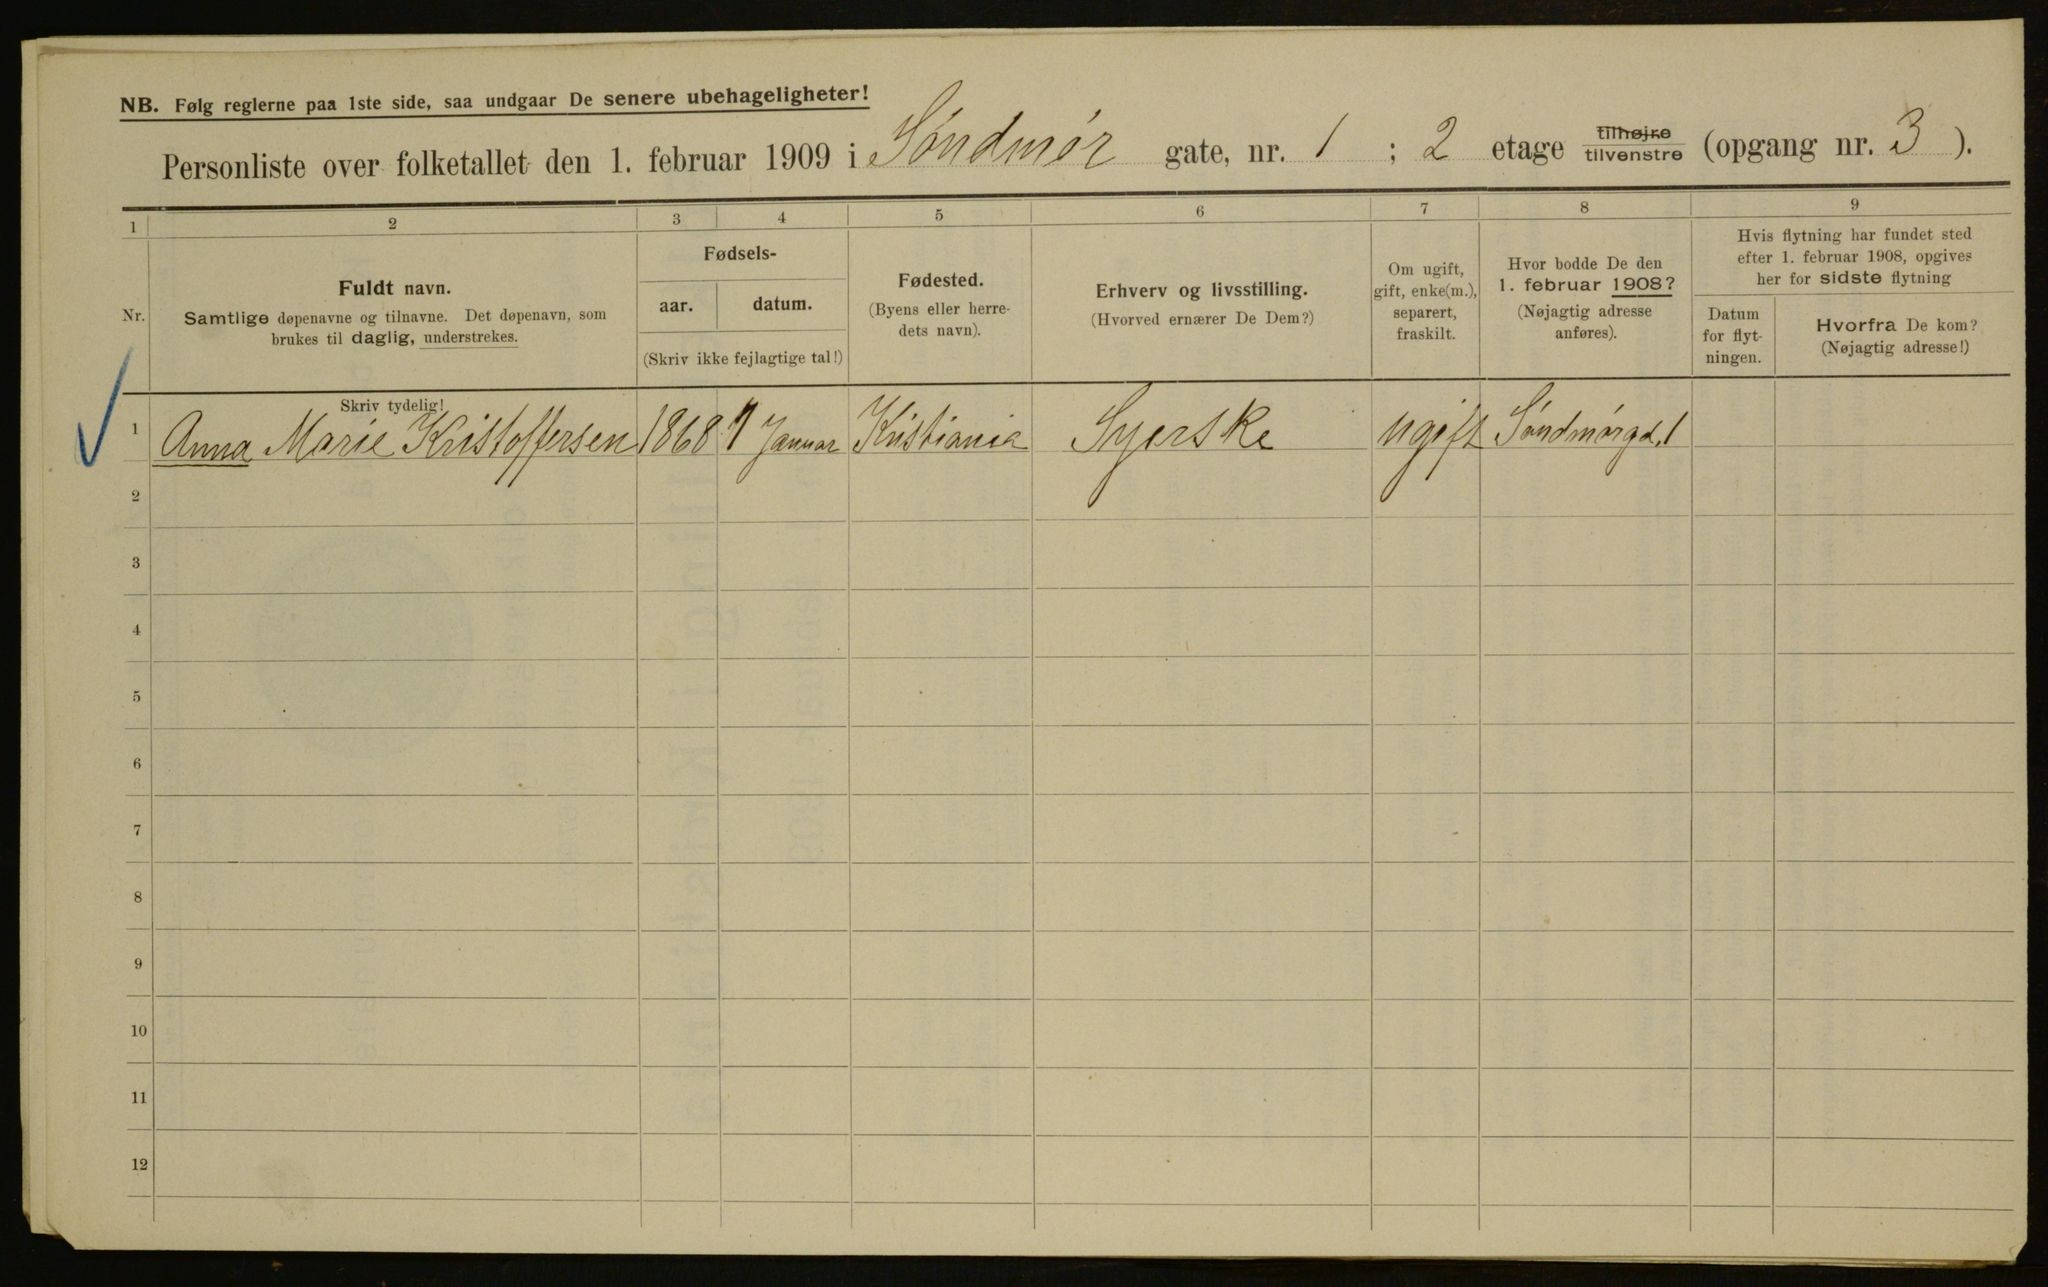 NB. Følg reglerne paa 1ste side, saa undgaar De senere ubehageligheter!
Personliste over folketallet den 1. februar 1909 i Søndmør gate, nr. 1 ; 2 etage tilhøjre tilvenstre (opgang nr. 3 ).
1 2 3 4 5 6 7 8 9
Nr.
Fuldt navn.
Samtlige døpenavne og tilnavne. Det døpenavn, som
brukes til daglig, understrekes.
Fødsels-
aar. datum.
(Skriv ikke fejlagtige tal!)
Fødested.
(Byens eller herre-
dets navn).
Erhverv og livsstilling.
(Hvorved ernærer De Dem?)
Om ugift,
gift, enke(m.),
separert,
fraskilt.
Hvor bodde De den
1. februar 1908?
(Nøjagtig adresse
anføres).
Hvis flytning har fundet sted
efter 1. februar 1908, opgives
her for sidste flytning
Datum
for flyt-
ningen.
Hvorfra De kom?
(Nøjagtig adresse!)
Skriv tydelig!
1 Anna Marie Kristoffersen 1868 7 Januar Kristiania Syerske ugift Søndmørgd. 1
2
3
4
5
6
7
8
9
10
11
12